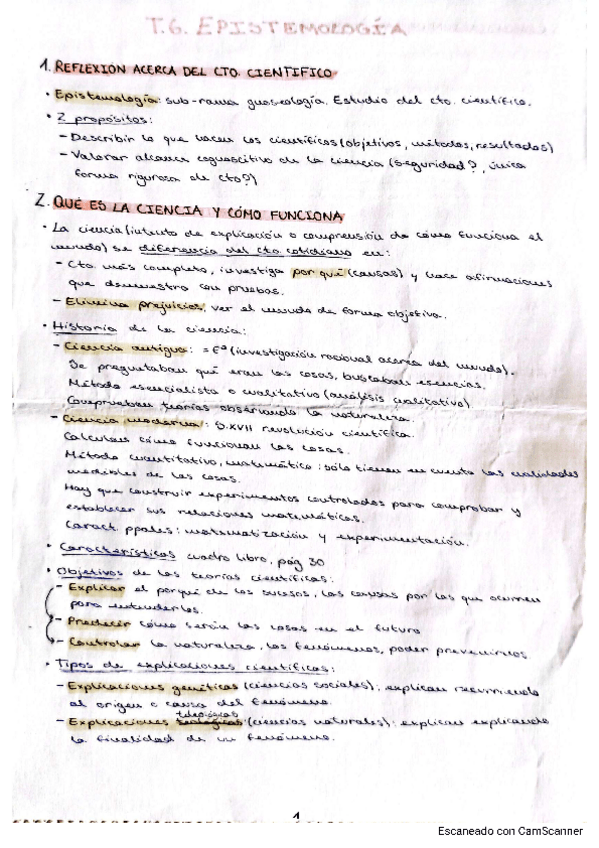 T.6. EPISTEMOLOGÍA
1. REFLEXIÓN ACERCA DEL CTO. CIENTÍFICO
· Epistemología: sub-rama gnoseología. Estudio del cto. científico.
· 2 propósitos:
- Describir lo que hacen los científicos (objetivos, métodos, resultados)
- Valorar alcance cognoscitivo de la ciencia (seguridad?, única
forma rigurosa de cto?)
2. QUÉ ES LA CIENCIA Y CÓMO FUNCIONA
· La ciencia (intento de explicación o comprensión de cómo funciona el
mundo) se diferencia del cto. cotidiano en:
- Cto. más completo, investiga por qué (causas) y hace afirmaciones
que demuestra con pruebas.
- Elimina prejuicios, ver el mundo de forma objetiva.
· Historia de la ciencia:
- Ciencia antigua: = fª (investigación racional acerca del mundo).
Se preguntaban qué eran las cosas, buscaban esencias.
Método esencialista o cualitativo (análisis cualitativo)
Comprueban teorías observando la naturaleza.
- Ciencia moderna: S.XVII revolución científica.
Calculan cómo funcionan las cosas.
Método cuantitativo, matemático: sólo tienen en cuenta las cualidades
medibles de las cosas.
Hay que construir experimentos controlados para comprobar y
establecer sus relaciones matemáticas.
Caract. ppales: matematización y experimentación.
· Características cuadro libro, pág 30
· Objetivos de las teorías científicas:
- Explicar el porqué de los sucesos, las causas por las que ocurren
para entenderlos.
- Predecir cómo serán las cosas en el futuro
- Controlar la naturaleza, los fenómenos, poder prevenirnos.
· Tipos de explicaciones científicas:
- Explicaciones genéticas (ciencias sociales): explican recurriendo
al origen o causa del fenómeno.
teleológicas
- Explicaciones (ciencias naturales): explican explicando
la finalidad de un fenómeno.
1
Escaneado con CamScanner